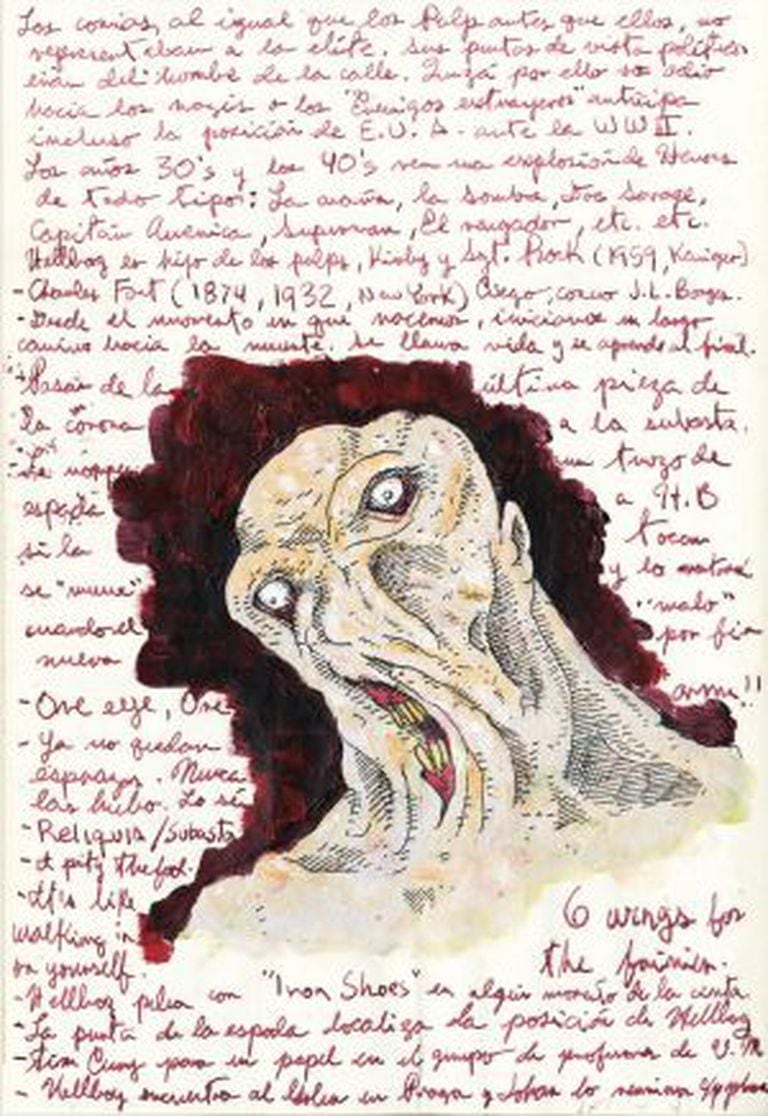 Los comics, al igual que los Pulps antes que ellos, no
representaban a la elite. Sus puntos de vista políticos
eran del hombre de la calle. Quizá por ello su odio
hacia los nazis o los "Enemigos extranjeros" anticipa
incluso la posición de E.U.A. ante la WWII.
Los años 30's y los 40's ven una explosión de Heroes
de todo tipo: La araña, la sombra, Doc Savage,
Capitán America, Superman, El vengador, etc. etc.
Hellboy es hijo de los pulps, Kirby y Sgt. Rock (1959, Kanigher)
- Charles Fort (1874, 1932, New York) Ciego, como J.L. Borges.
- Desde el momento en que nacemos, iniciamos un largo
camino hacia la muerte. Se llama vida y se aprende al final.
Pasar de la última pieza de
la corona a la subasta.
se rompe un trozo de
espada a H.B
si la tocan
se "muere" y lo
cuando el "malo"
nueva por fin
arma!!
- One eye, One
- Ya no quedan
esperanzas. Nunca
las hubo. Lo sé
- Reliquia/Subasta
- I pity the fool.
- It's like
walking in
on yourself.
6 wings for
the
- Hellboy pelea con "Iron Shoes" en algún momento de la cinta.
- La punta de la espada localiza la posición de Hellboy
- Tim Curry para un papel en el grupo de profesores de
- Hellboy encuentra al en Praga y Johan lo